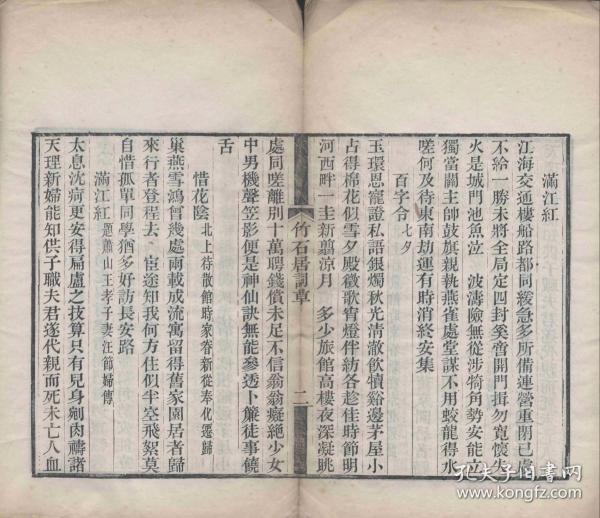 滿江紅
江海交通樓船路都同緩急多所備連營重閉已處
不給一勝未將全局定四封奚啻開門揖勿寬懷失
火是城門池魚泣　波濤險無從涉犄角勢安能立
獨當關主帥鼓旗親執燕雀處堂謀不用蛟龍得水
嗟何及待東南劫運有時消終安集
百字令七夕
玉環恩寵證私語銀燭秋光清澈飲犢谿邊茅屋小
占得棉花似雪夕殿徵歌宵燈伴紡各趁佳時節明
河西畔一圭新翦涼月　多少旅館高樓夜深凝眺
竹石居詞草
二
處同嗟離別十萬聘錢償未足不信翁翁癡絕少女
中男機聲笠影便是神仙訣無能參透卜簾徒事饒
舌
惜花陰北上待散館時家眷新從奉化遷歸
巢燕雪鴻曾幾處兩載成流寓留得舊家園居者歸
來行者登程去　宦途知我何方住似半空飛絮莫
自惜孤單同學猶多好訪長安路
滿江紅題蕭山王孝子妻汪節婦傳
太息沈痾更安得扁盧之技算只有兒身剜肉禱諸
天理新婦能知供子職夫君遂代親而死未亡人血
孔夫子旧书网
www.kongfz.com